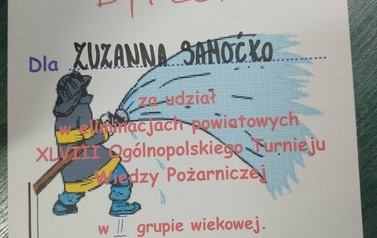 Dla ZUZANNA SAMOĆKO
za udział
w eliminacjach powiatowych
XLVIII Ogólnopolskiego Turnieju
Wiedzy Pożarniczej
w II grupie wiekowej.